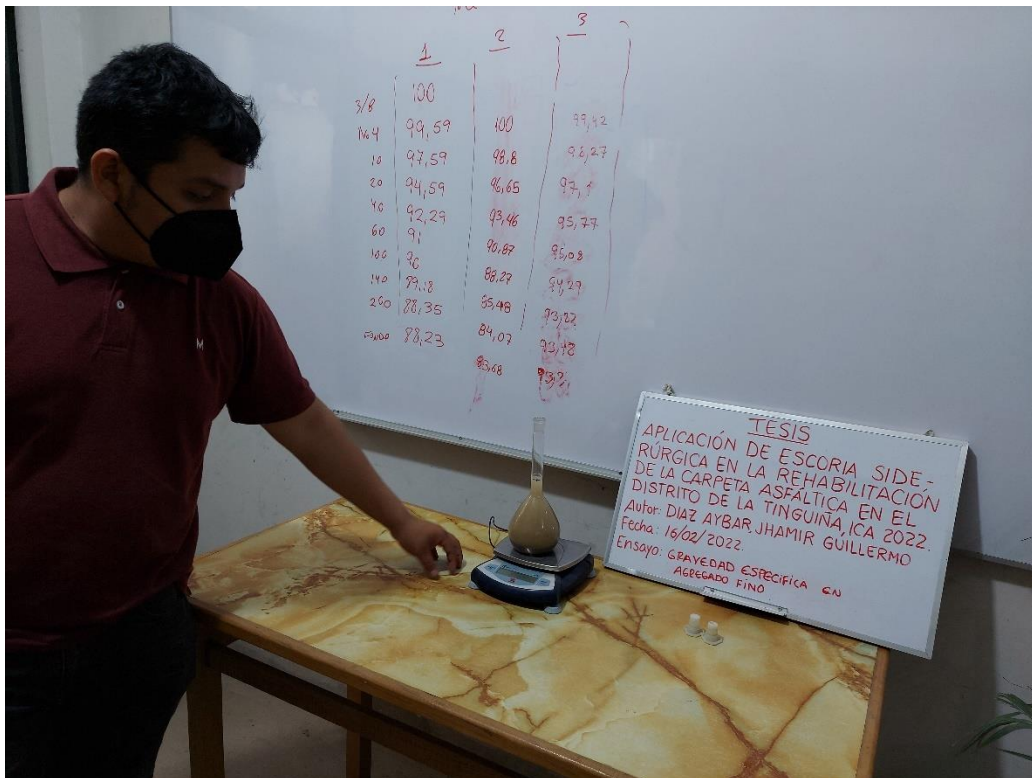 1 2 3
3/8 100
No 4 99,59 100 99,42
10 97,59 98,8 98,27
20 94,59 96,65 97,
40 92,29 93,46 95,77
60 91 90,87 95,08
100 90 88,27 94,29
140 89,18 85,48 93,22
200 88,35 84,07 93,42
88,23 83,68
M
TESIS
APLICACIÓN DE ESCORIA SIDE-
RÚRGICA EN LA REHABILITACIÓN
DE LA CARPETA ASFÁLTICA EN EL
DISTRITO DE LA TINGUIÑA, ICA 2022.
Autor: DIAZ AYBAR, JHAMIR GUILLERMO
Fecha: 16/02/2022.
Ensayo: GRAVEDAD ESPECIFICA EN
AGREGADO FINO